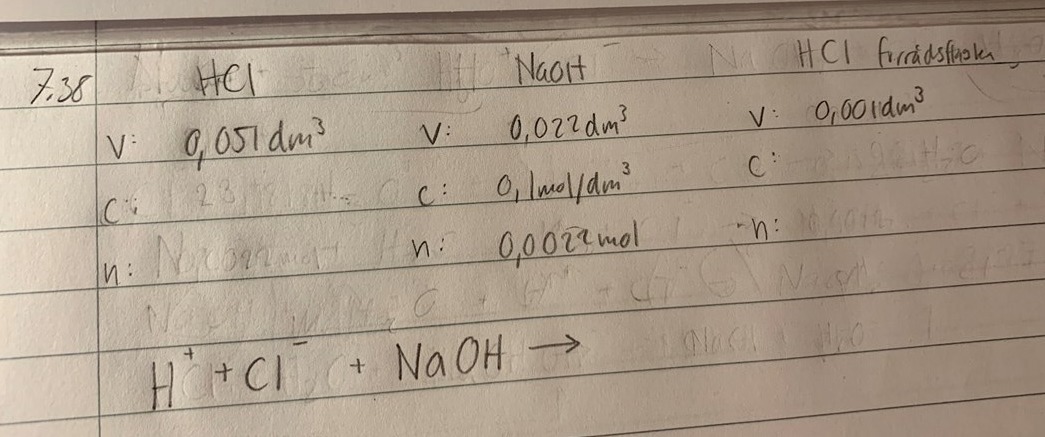 7.38 HCl NaOH HCl förrådsflaskan
V: 0,051 dm³ V: 0,022 dm³ V: 0,001 dm³
C: C: 0,1 mol/dm³ C:
n: n: 0,0022 mol n:
H⁺ + Cl⁻ + NaOH →